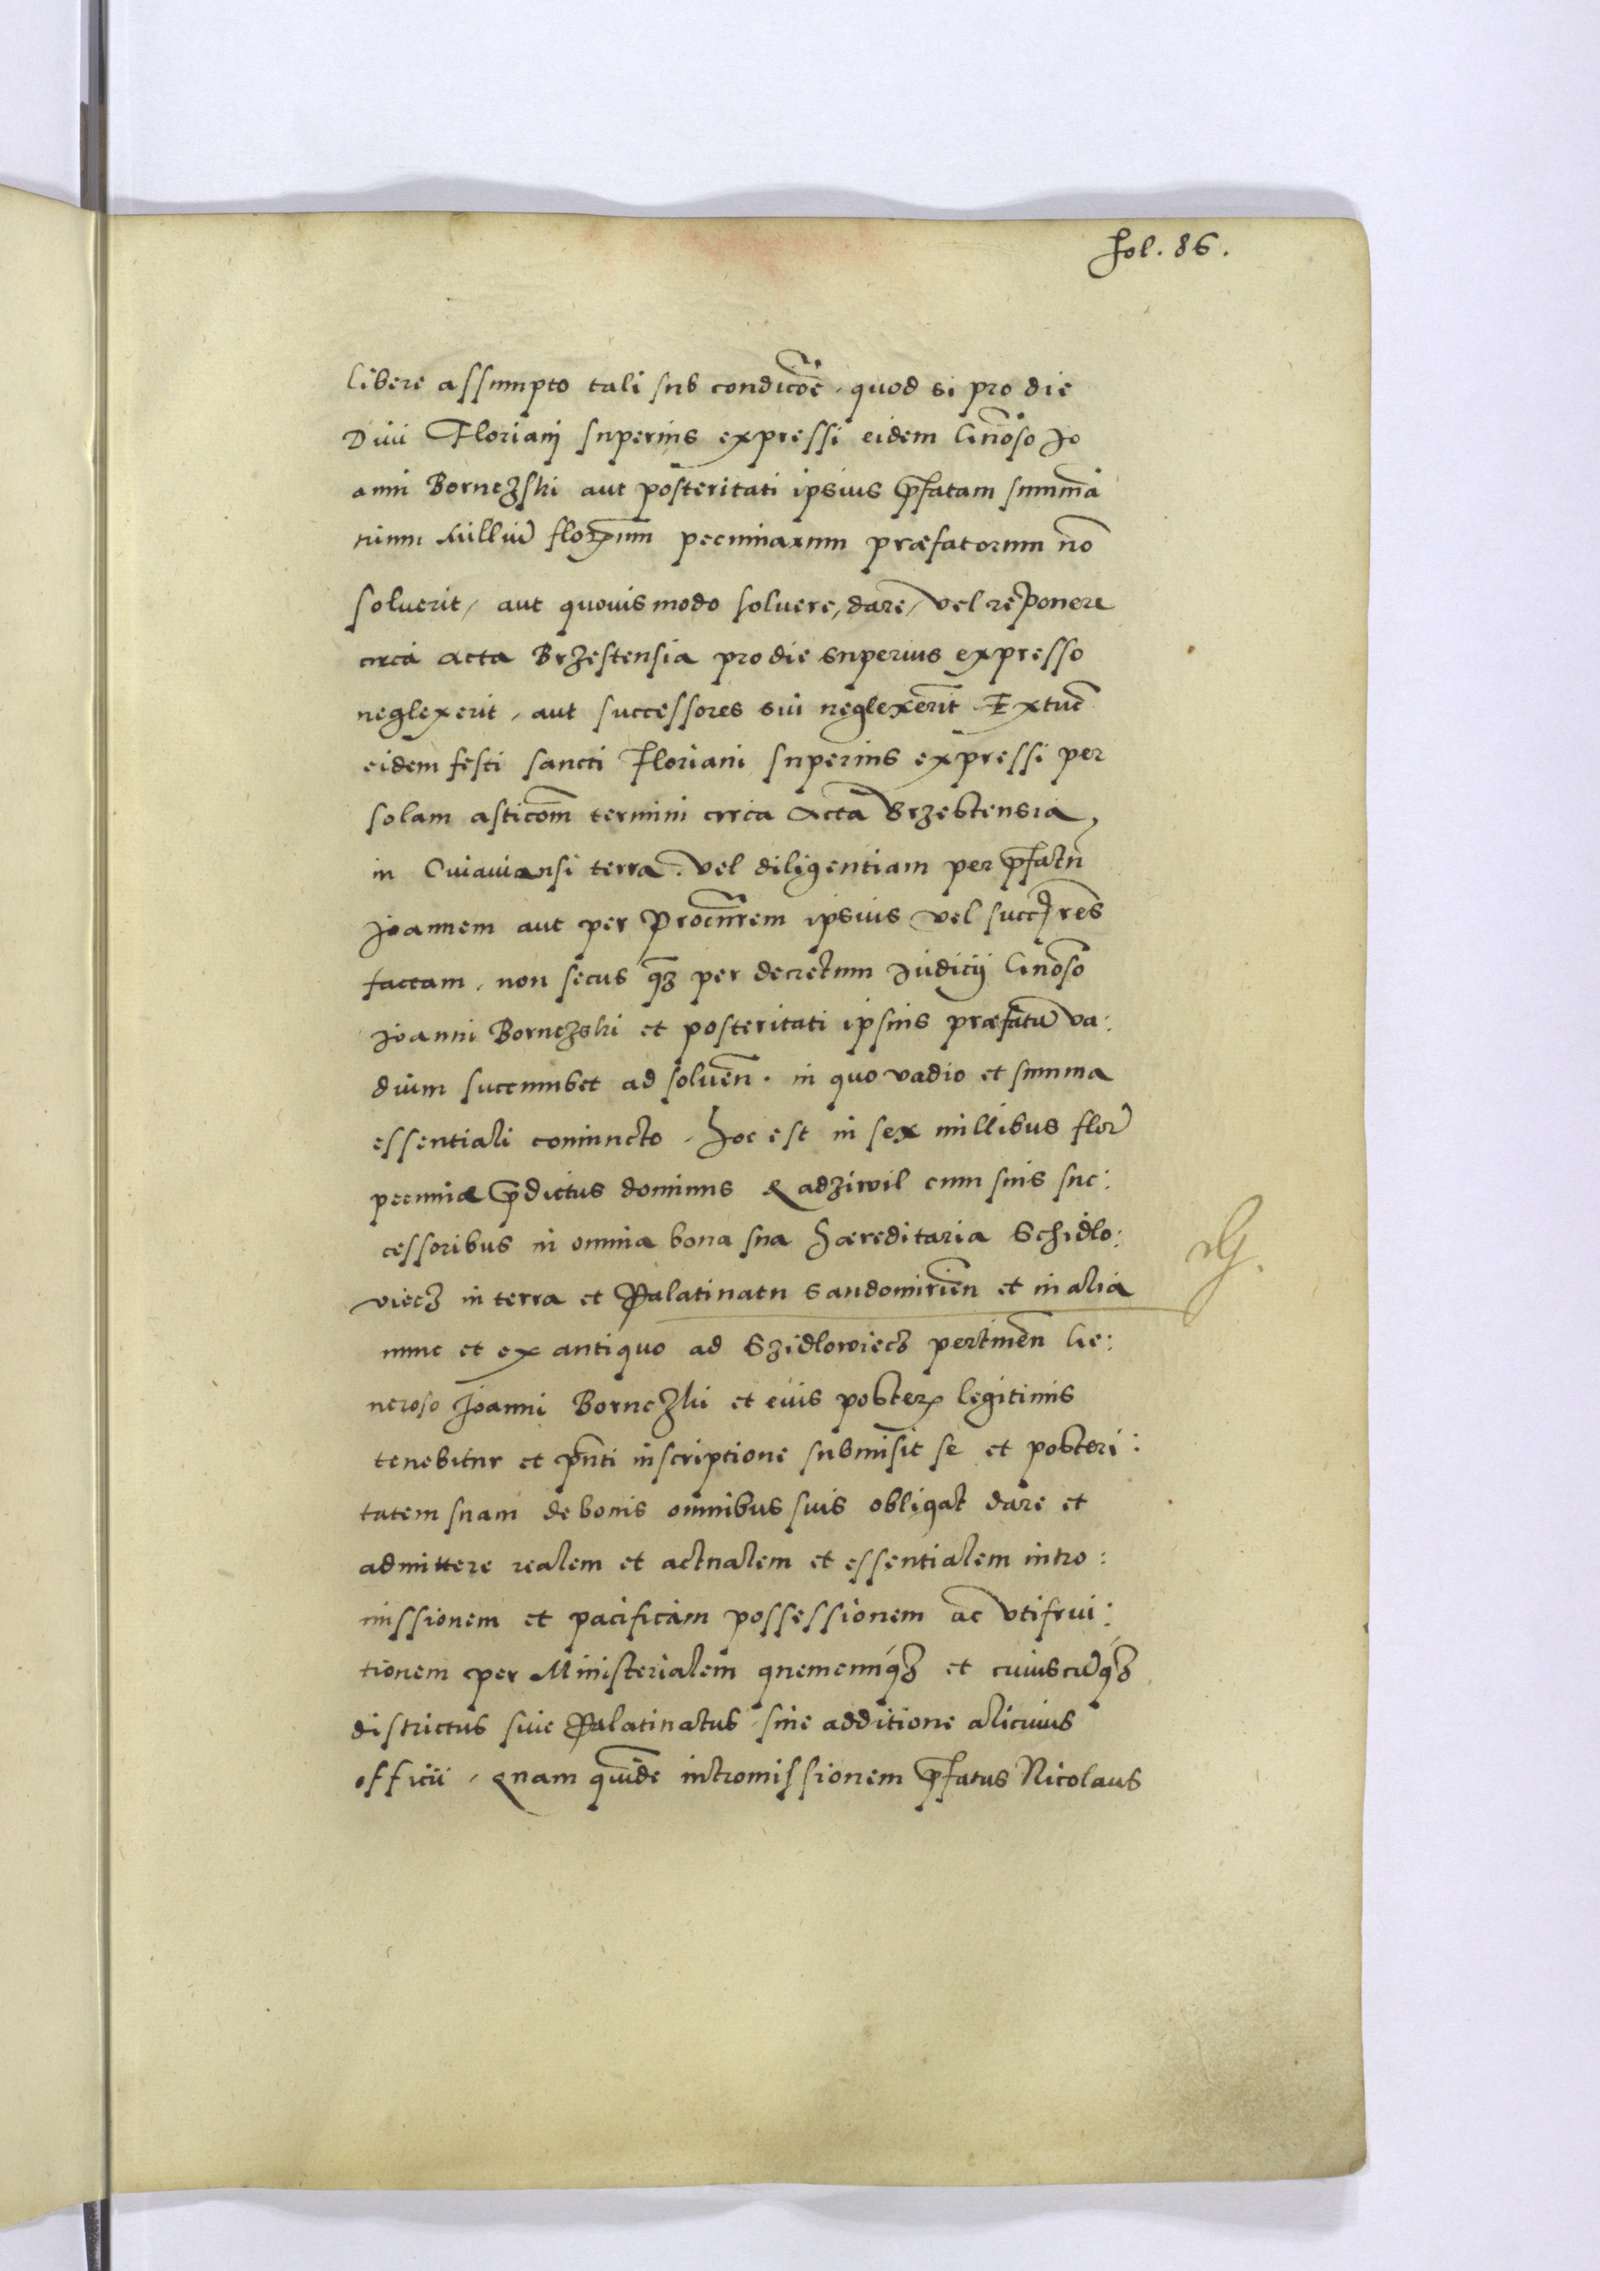 fol. 86.
libere assumpto tali sub condicoẽ, quod si pro die
Diui Floriani superius expressi eidem Gnõso Jo
anni Bornczski aut posteritati ipsius p̃fatam summã
trium milliũ florenum pecuniarum præfatorum nõ
soluerit, aut quouis modo soluere, dare, vel reponere
circa acta Brzestensia pro die superius expresso
neglexerit, aut successores sui neglexerĩt Extũc
eidem festi sancti Floriani superius expressi per
solam asticom̃ termini circa Acta Brzestensia,
in Cuiauiansi terra. vel diligentiam per p̃fatũ
Joannem aut per Procur̃rem ipsius vel succ̃res
factam, non secus q̃ȝ per decretum Judicij Gnõso
Joanni Bornczski et posteritati ipsius præfatũ va:
dium succumbet ad soluen̄. in quo vadio et summa
essentiali coniuncto, hoc est in sex millibus florẽ
pecuniæ p̃dictus dominus Radziwil cum suis suc:
cessoribus in omnia bona sua hæreditaria Schidlo:
viecz in terra et Palatinatu Sandomirien̄ et in alia
nunc et ex antiquo ad Szidlowiecz pertinen̄ Ge:
neroso Joanni Bornczki et eius poster̃ legitimis
tenebitur et p̃nti inscriptione submisit se et posteri:
tatem suam de bonis omnibus suis obligat dare et
admittere realem et actualem et essentialem intro:
missionem et pacificam possessionem ac vtifrui:
tionem per Ministerialem quemcunq́ȝ et cuiuscũq́ȝ
districtus siue Palatinatus, sine additione alicuius
officii, quam quidẽ intromissionem p̃fatus Nicolaus